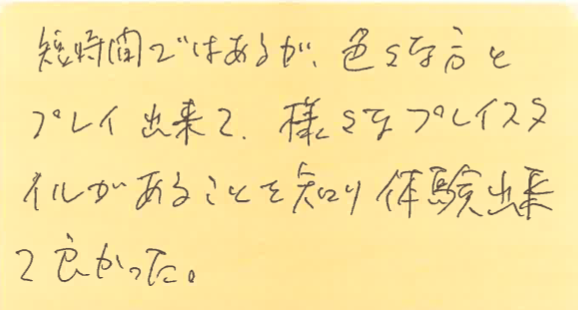 短時間ではあるが、色々な方と
プレイ出来て、様々なプレイスタ
イルがあることを知り体験出来
て良かった。